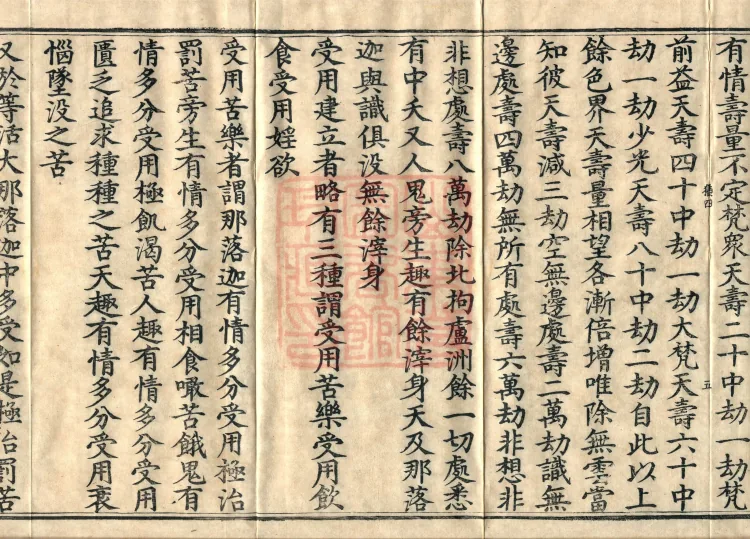 有情壽量不定梵衆天壽二十中劫一劫梵
前益天壽四十中劫一劫大梵天壽六十中
劫一劫少光天壽八十中劫二劫自此以上
餘色界天壽量相望各漸倍增唯除無雲當
知彼天壽減三劫空無邊處壽二萬劫識無
邊處壽四萬劫無所有處壽六萬劫非想非
非想處壽八萬劫除北拘盧洲餘一切處悉
有中夭又人鬼旁生趣有餘滓身天及那落
迦與識俱没無餘滓身
受用建立者略有三種謂受用苦樂受用飲
食受用婬欲
受用苦樂者謂那落迦有情多分受用極治
罰苦旁生有情多分受用相食噉苦餓鬼有
情多分受用極飢渴苦人趣有情多分受用
匱乏追求種種之苦天趣有情多分受用衰
惱墜没之苦
又於等活大那落迦中多受如是極治罰苦